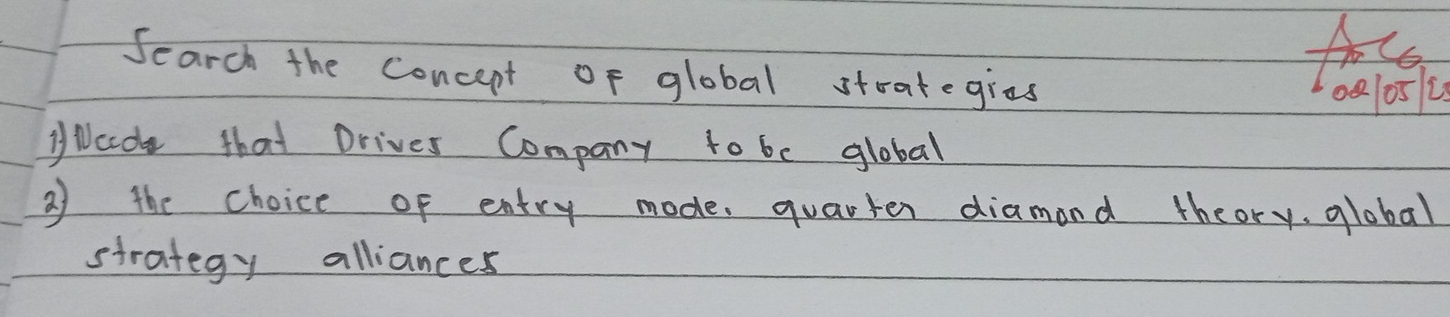 Search the concept of global strategies
1) Needs that Drives Company to be global
2) the choice of entry mode. quarter diamond theory. global
strategy alliances
02/05/2